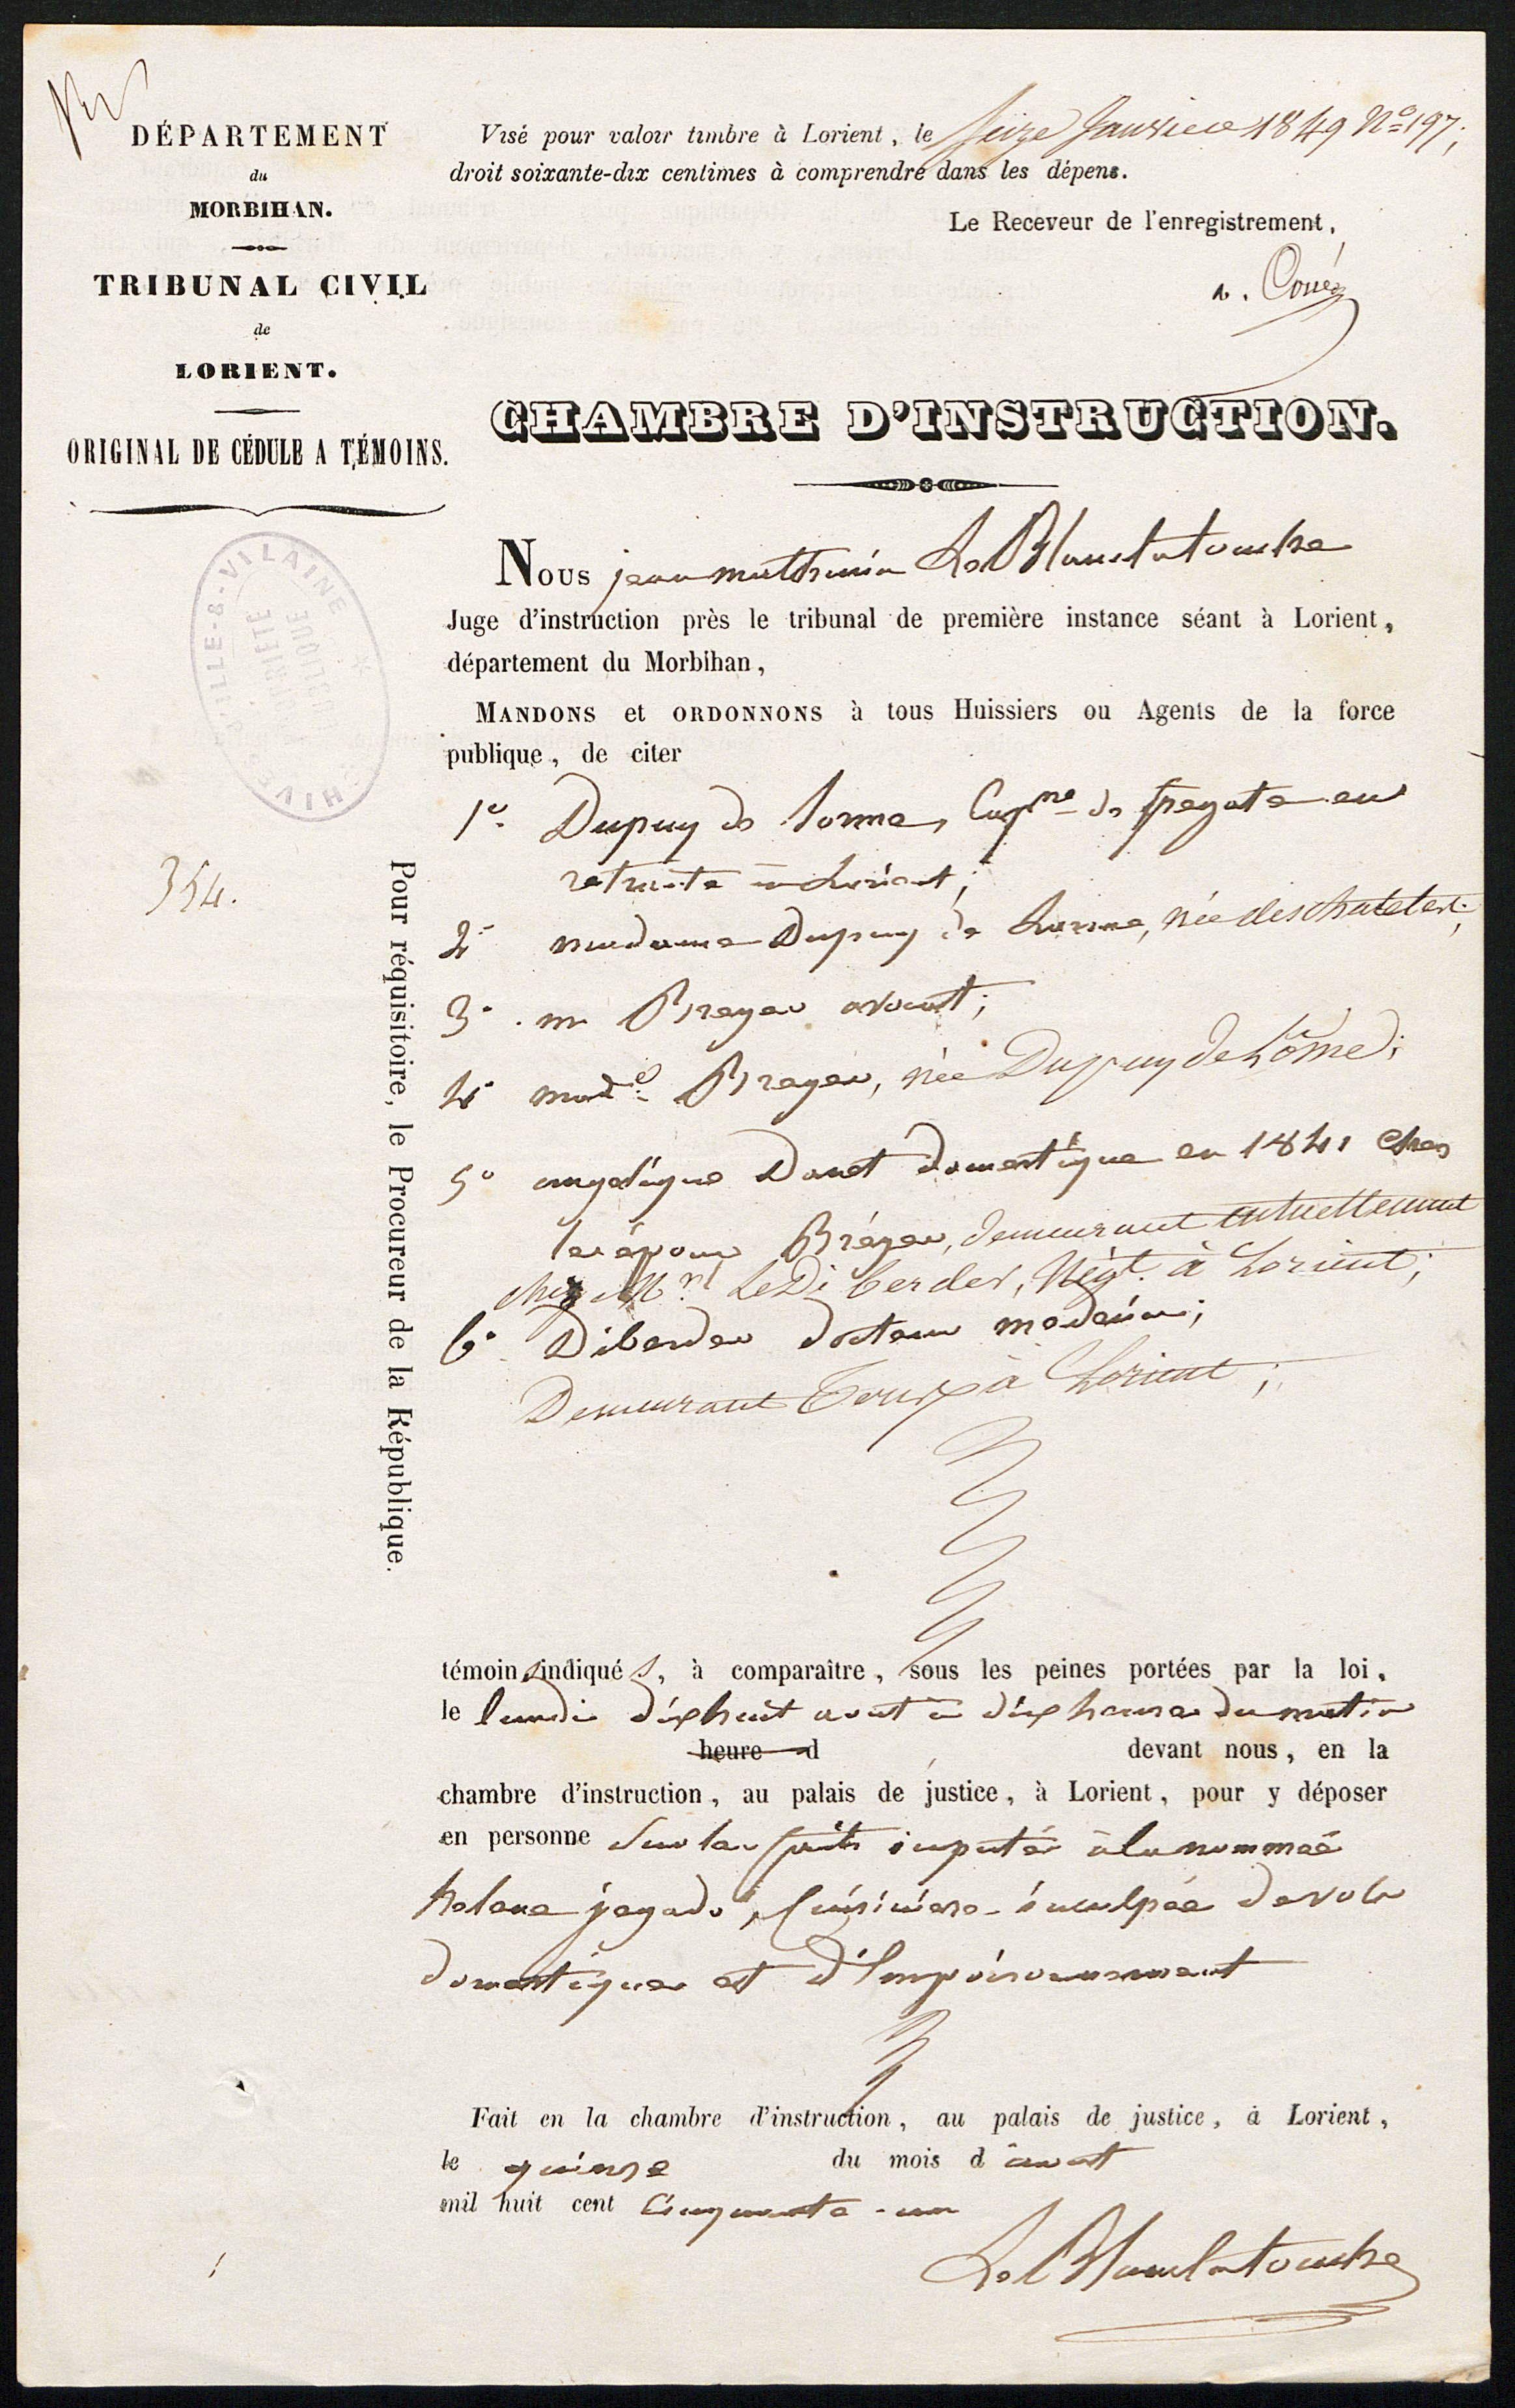 DÉPARTEMENT
du
MORBIHAN.
TRIBUNAL CIVIL
de
LORIENT.
ORIGINAL DE CÉDULE A TÉMOINS.
Visé pour valoir timbre à Lorient, le Seize Janvier 1849 N° 197;
droit soixante-dix centimes à comprendre dans les dépens.
Le Receveur de l'enregistrement,
CHAMBRE D'INSTRUCTION.
Nous jean mathurin Le Blanclatouche
Juge d'instruction près le tribunal de première instance séant à Lorient,
département du Morbihan,
MANDONS et ORDONNONS à tous Huissiers ou Agents de la force
publique, de citer
1° Dupuy de Lorme, Capne de fregate en
retraite à Lorient;
2° madame Dupuy de Lorme, née deschatelet;
3° m Breger avocat;
4° made Breger, née Dupuy de Lôme;
5° angelique Danet domestique en 1841 chez
les époux Bréger, demeurant actuellement
chez Mr Le Diberder, Négt. à Lorient;
6° Diberder docteur medecin;
Demeurant Tous à Lorient;
354.
Pour réquisitoire, le Procureur de la République.
témoins indiqués, à comparaître, sous les peines portées par la loi,
le lundi dix huit aout à dix heures du matin
heure d devant nous, en la
chambre d'instruction, au palais de justice, à Lorient, pour y déposer
en personne sur les faits imputés à la nommée
helene jegado, Cuisiniere inculpée de vols
domestiques et d'Empoisonnement
Fait en la chambre d'instruction, au palais de justice, à Lorient,
le quinze du mois d'aout
mil huit cent Cinquante-un
Le Blanclatouche